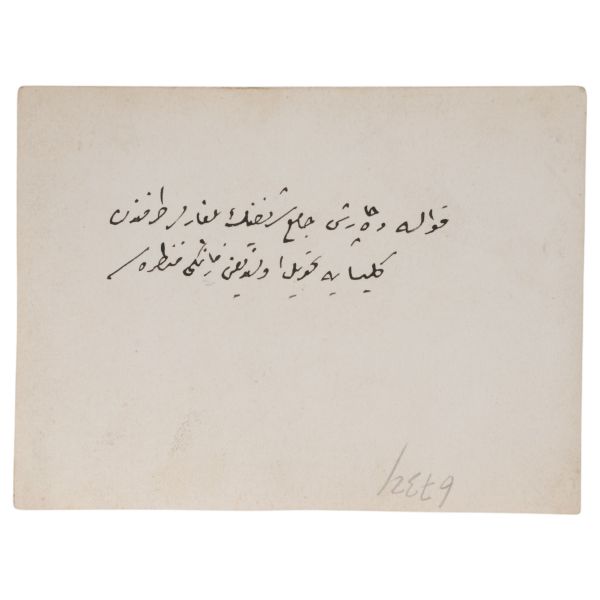 قواله ده چارشی جامع شریفنك بلغارلر طرفندن
کلیسایه تحویل اولندیغی زمانکی منظره سی